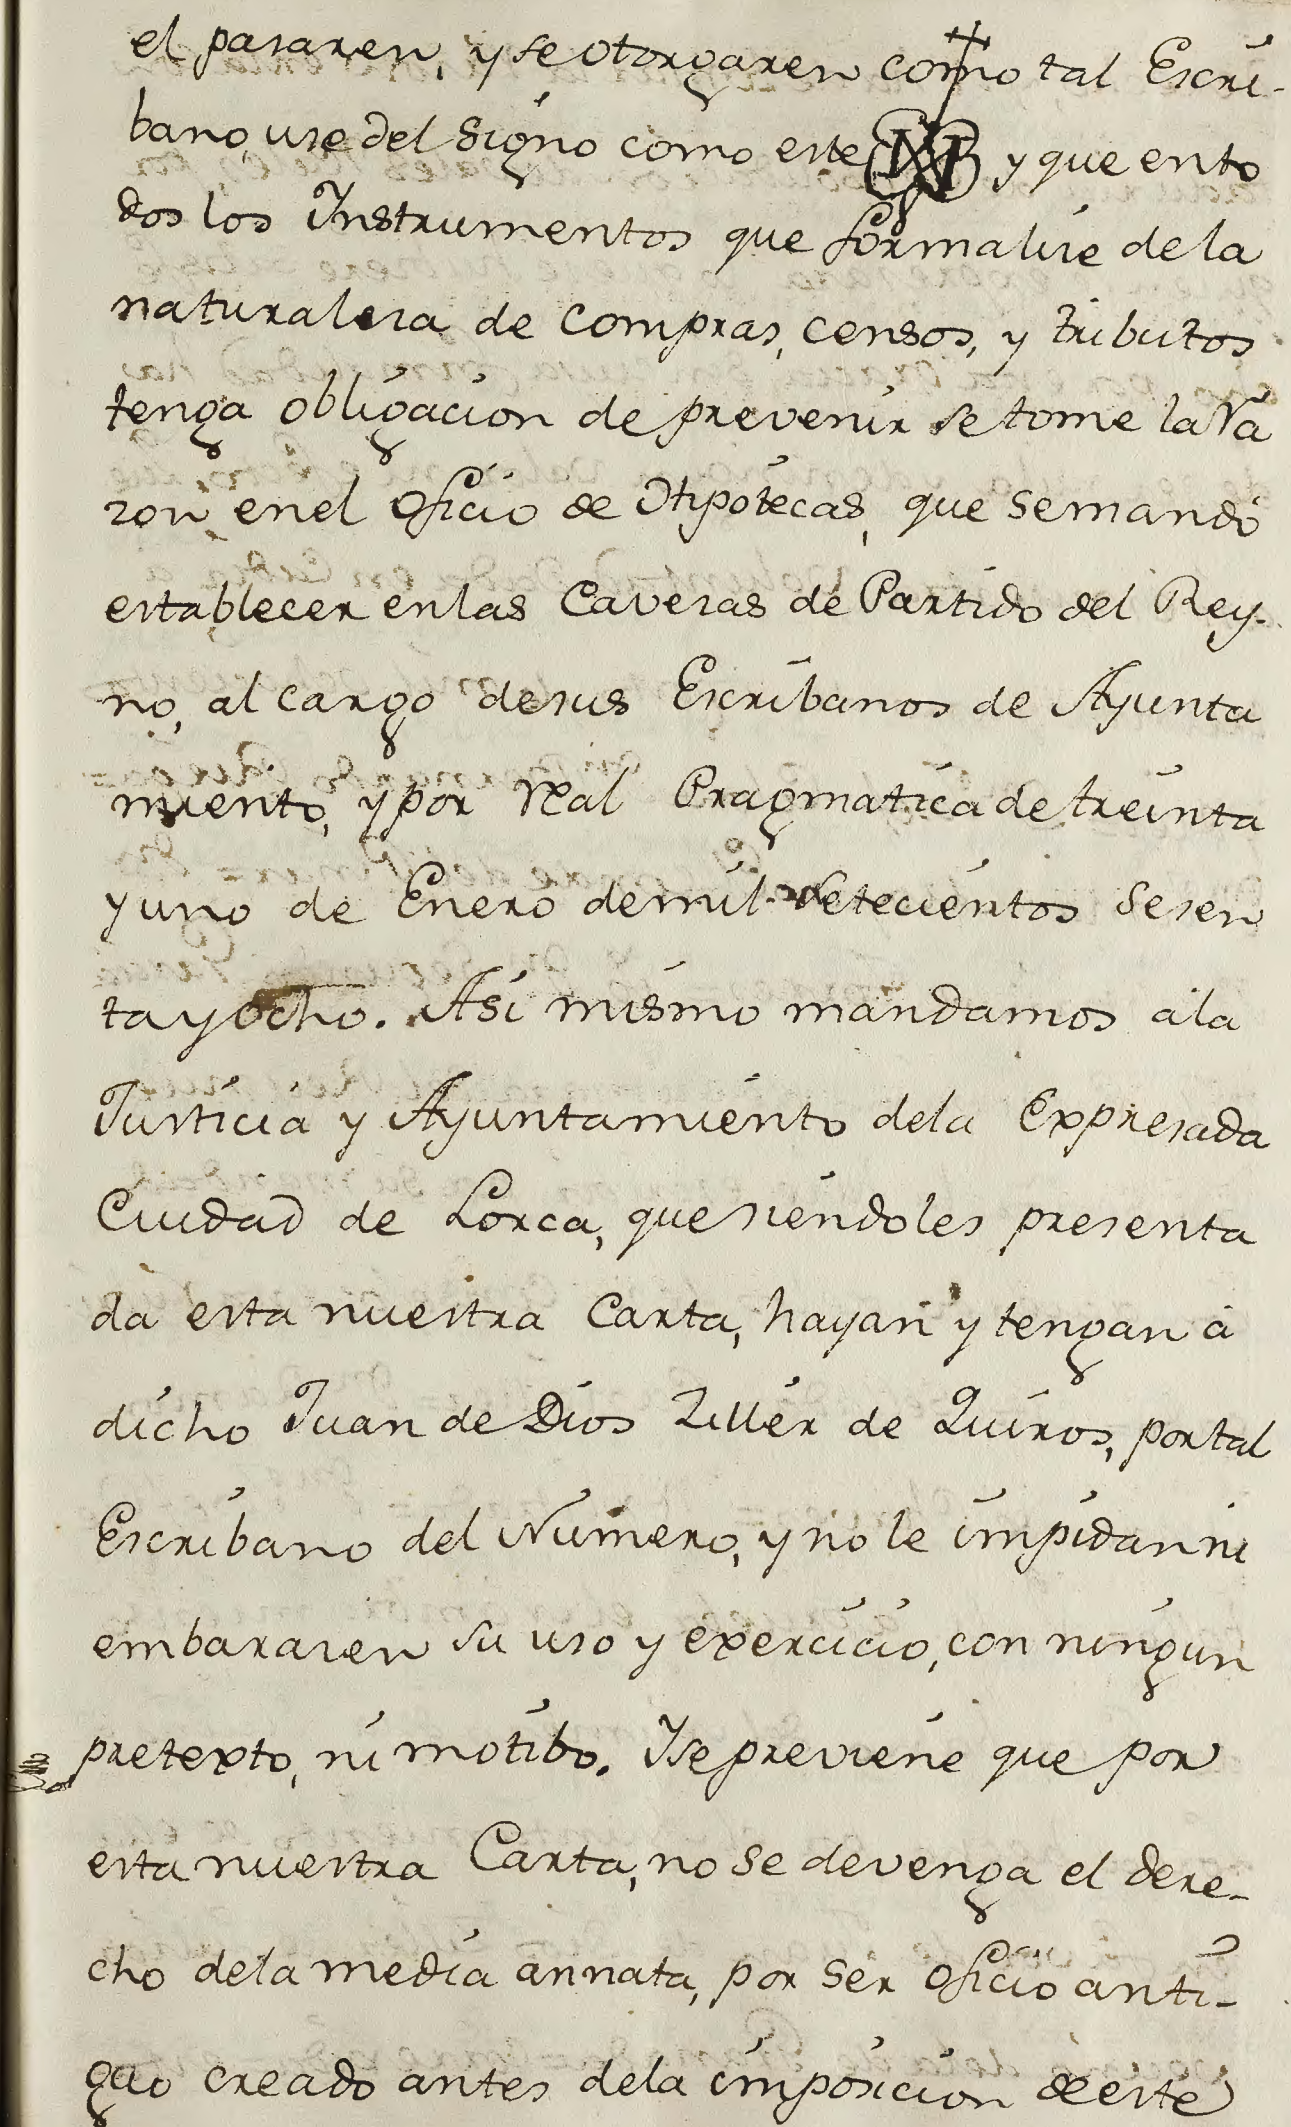 el pasaren, y se otorgaren como tal Escri-
bano, use del Signo como este y que en to
dos los Instrumentos que formalise de la
naturalesa de Compras, Censos, y tributos
tenga obligacion de prevenir se tome la Ra
zon, en el Oficio de Hipotecas, que se mandó
establecer en las Cavesas de Partido del Rey-
no, al cargo de sus Escribanos de Ayunta
miento, y por Real Pragmatica de treinta
y uno de Enero de mil setecientos sesen
ta y ocho. Asi mismo mandamos à la
Justicia y Ayuntamiento de la Expresada
Ciudad de Lorca, que siendoles presenta
da esta nuestra Carta, hayan y tengan à
dicho Juan de Dios de Quiros, por tal
Escribano del Número, y no le impidan ni
embarasen su uso y exercicio, con ningun
pretexto, ni motibo. Y se previene que por
esta nuestra Carta, no se devenga el dere-
cho de la media annata, por ser oficio anti-
guo creado antes de la imposicion de este